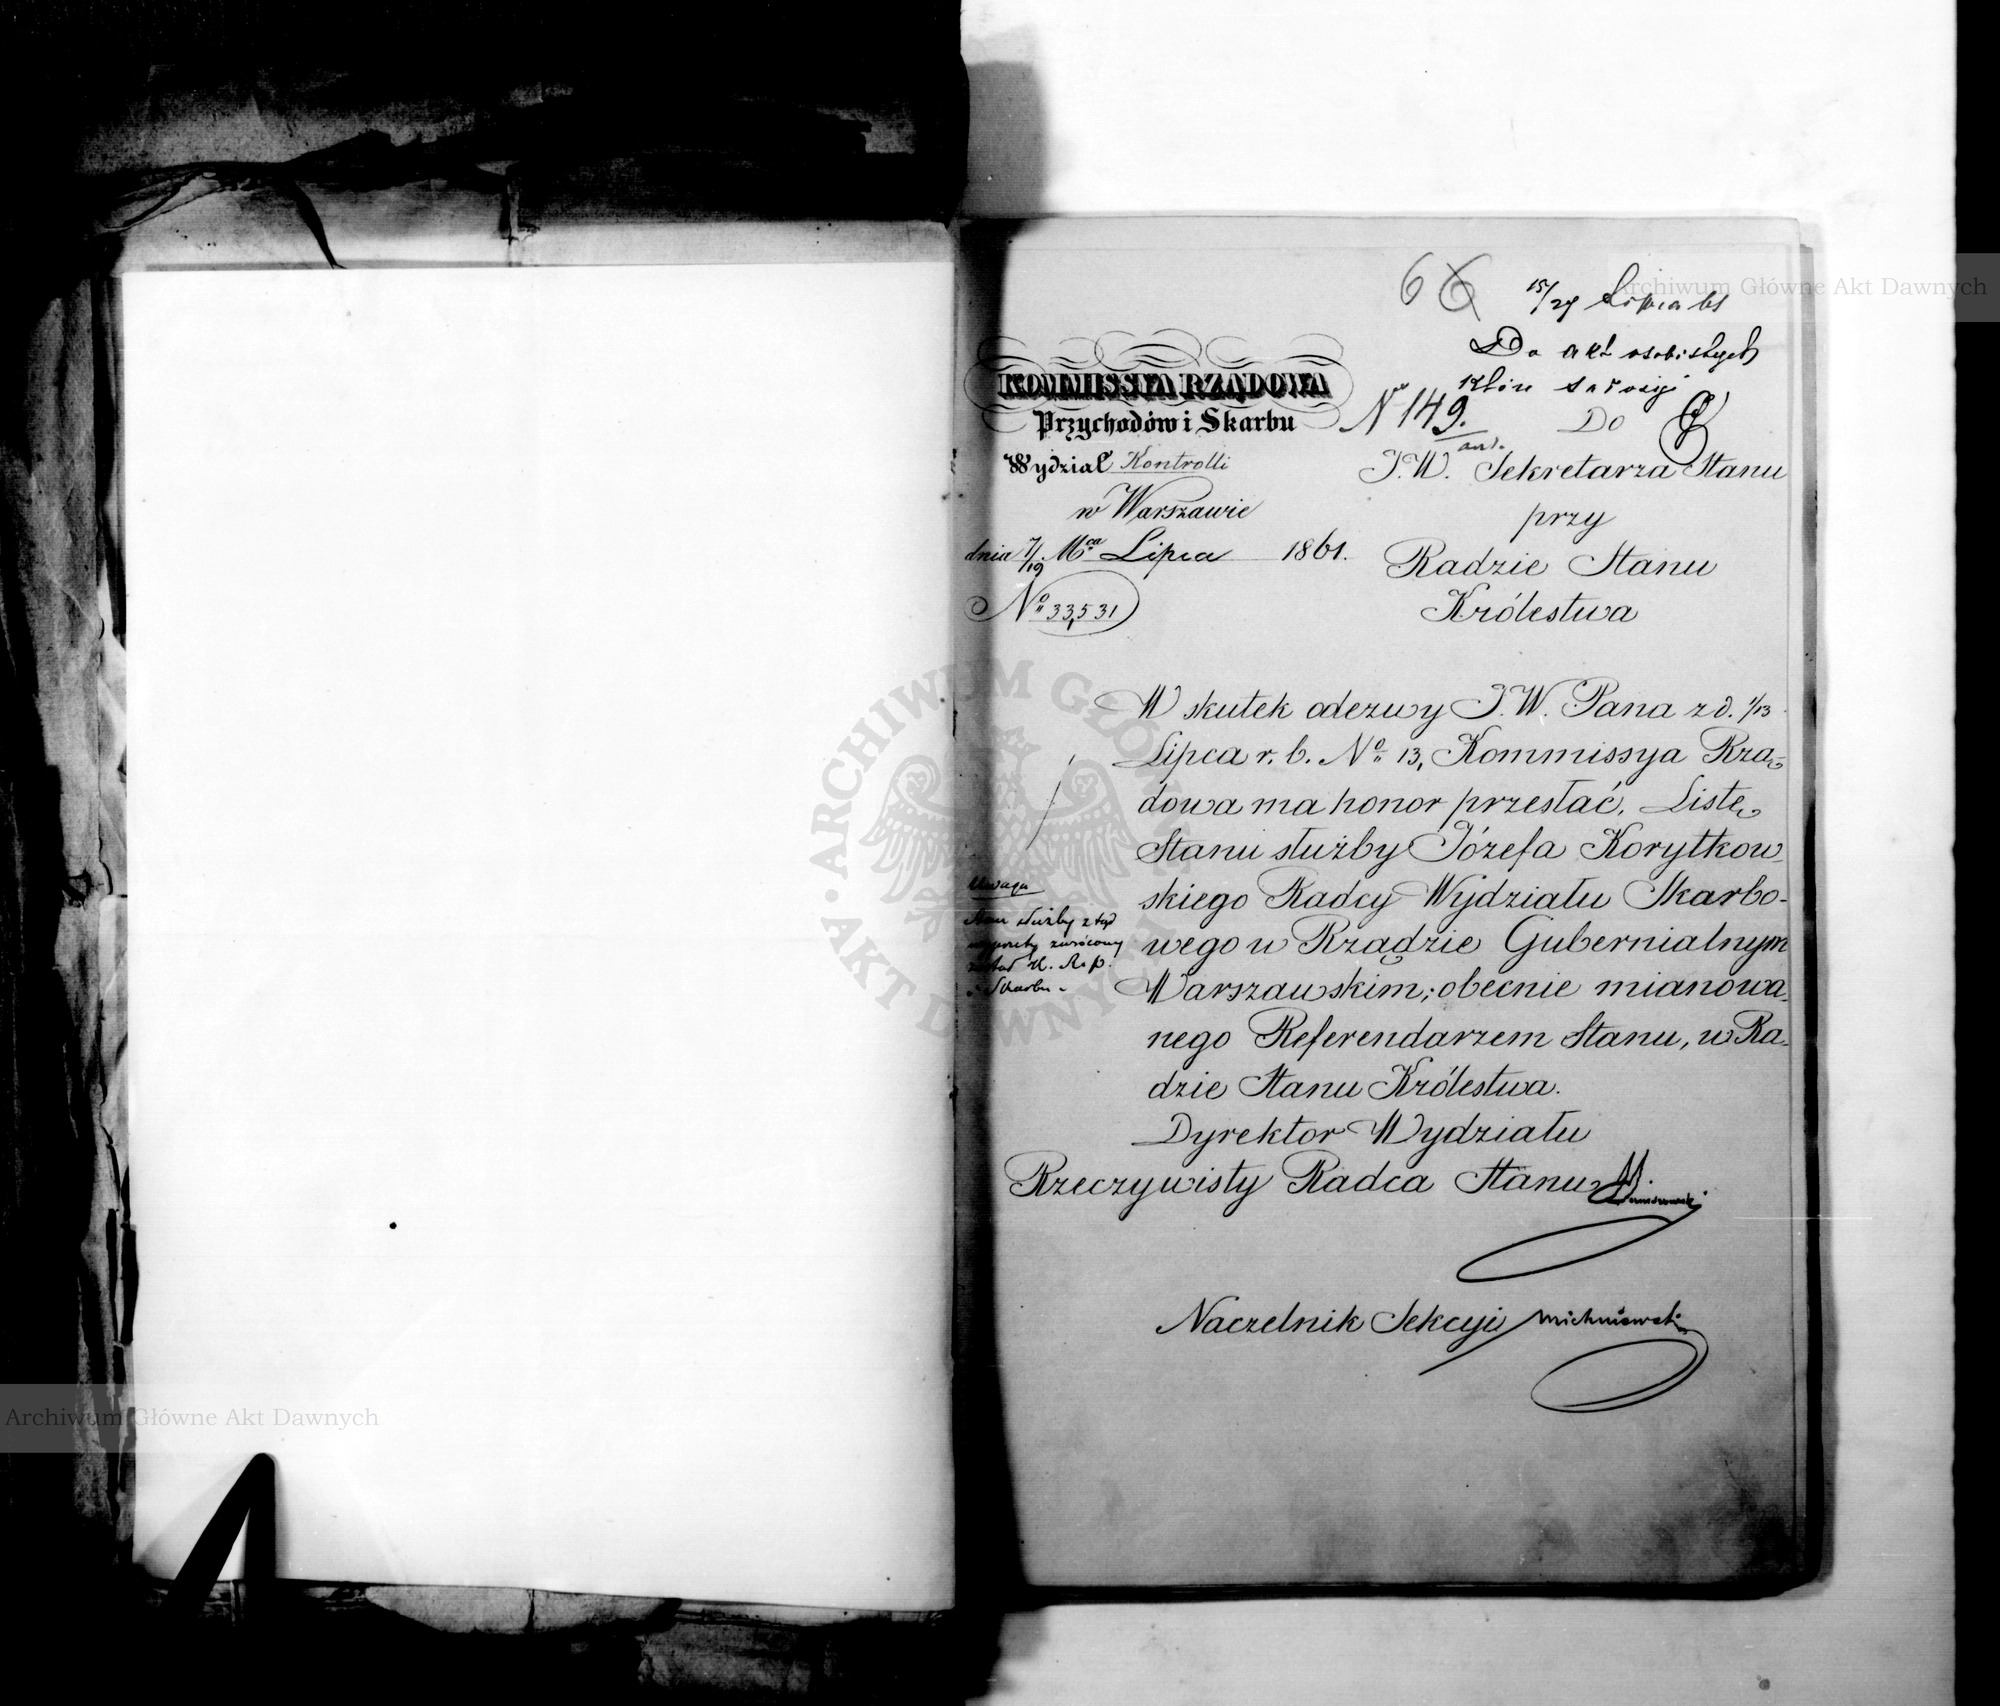 6 6
15/27 Lipca 61
Do akt osobistych
KOMMISSYA RZĄDOWA
Przychodów i Skarbu
Wydział Kontrolli
w Warszawie
dnia 7/19 Mca Lipca 1861.
No 33,531
No 149.
Do
J.W. Sekretarza Stanu
przy
Radzie Stanu
Królestwa
W skutek odezwy J.W. Pana z d. 1/13
Lipca r. b. No 13, Kommissya Rzą-
dowa ma honor przesłać, Listę
Stanu służby Józefa Korytkow-
skiego Radcy Wydziału Skarbo-
wego w Rządzie Gubernialnym
Warszawskim; obecnie mianowa-
nego Referendarzem Stanu, w Ra-
dzie Stanu Królestwa.
Dyrektor Wydziału
Rzeczywisty Radca Stanu
Naczelnik Sekcyi Michniewski
Uwaga
Stan służby z tąd
zwrócony
K. R. P.
i Skarbu
Archiwum Główne Akt Dawnych
ARCHIWUM GŁÓWNE AKT DAWNYCH
Archiwum Główne Akt Dawnych